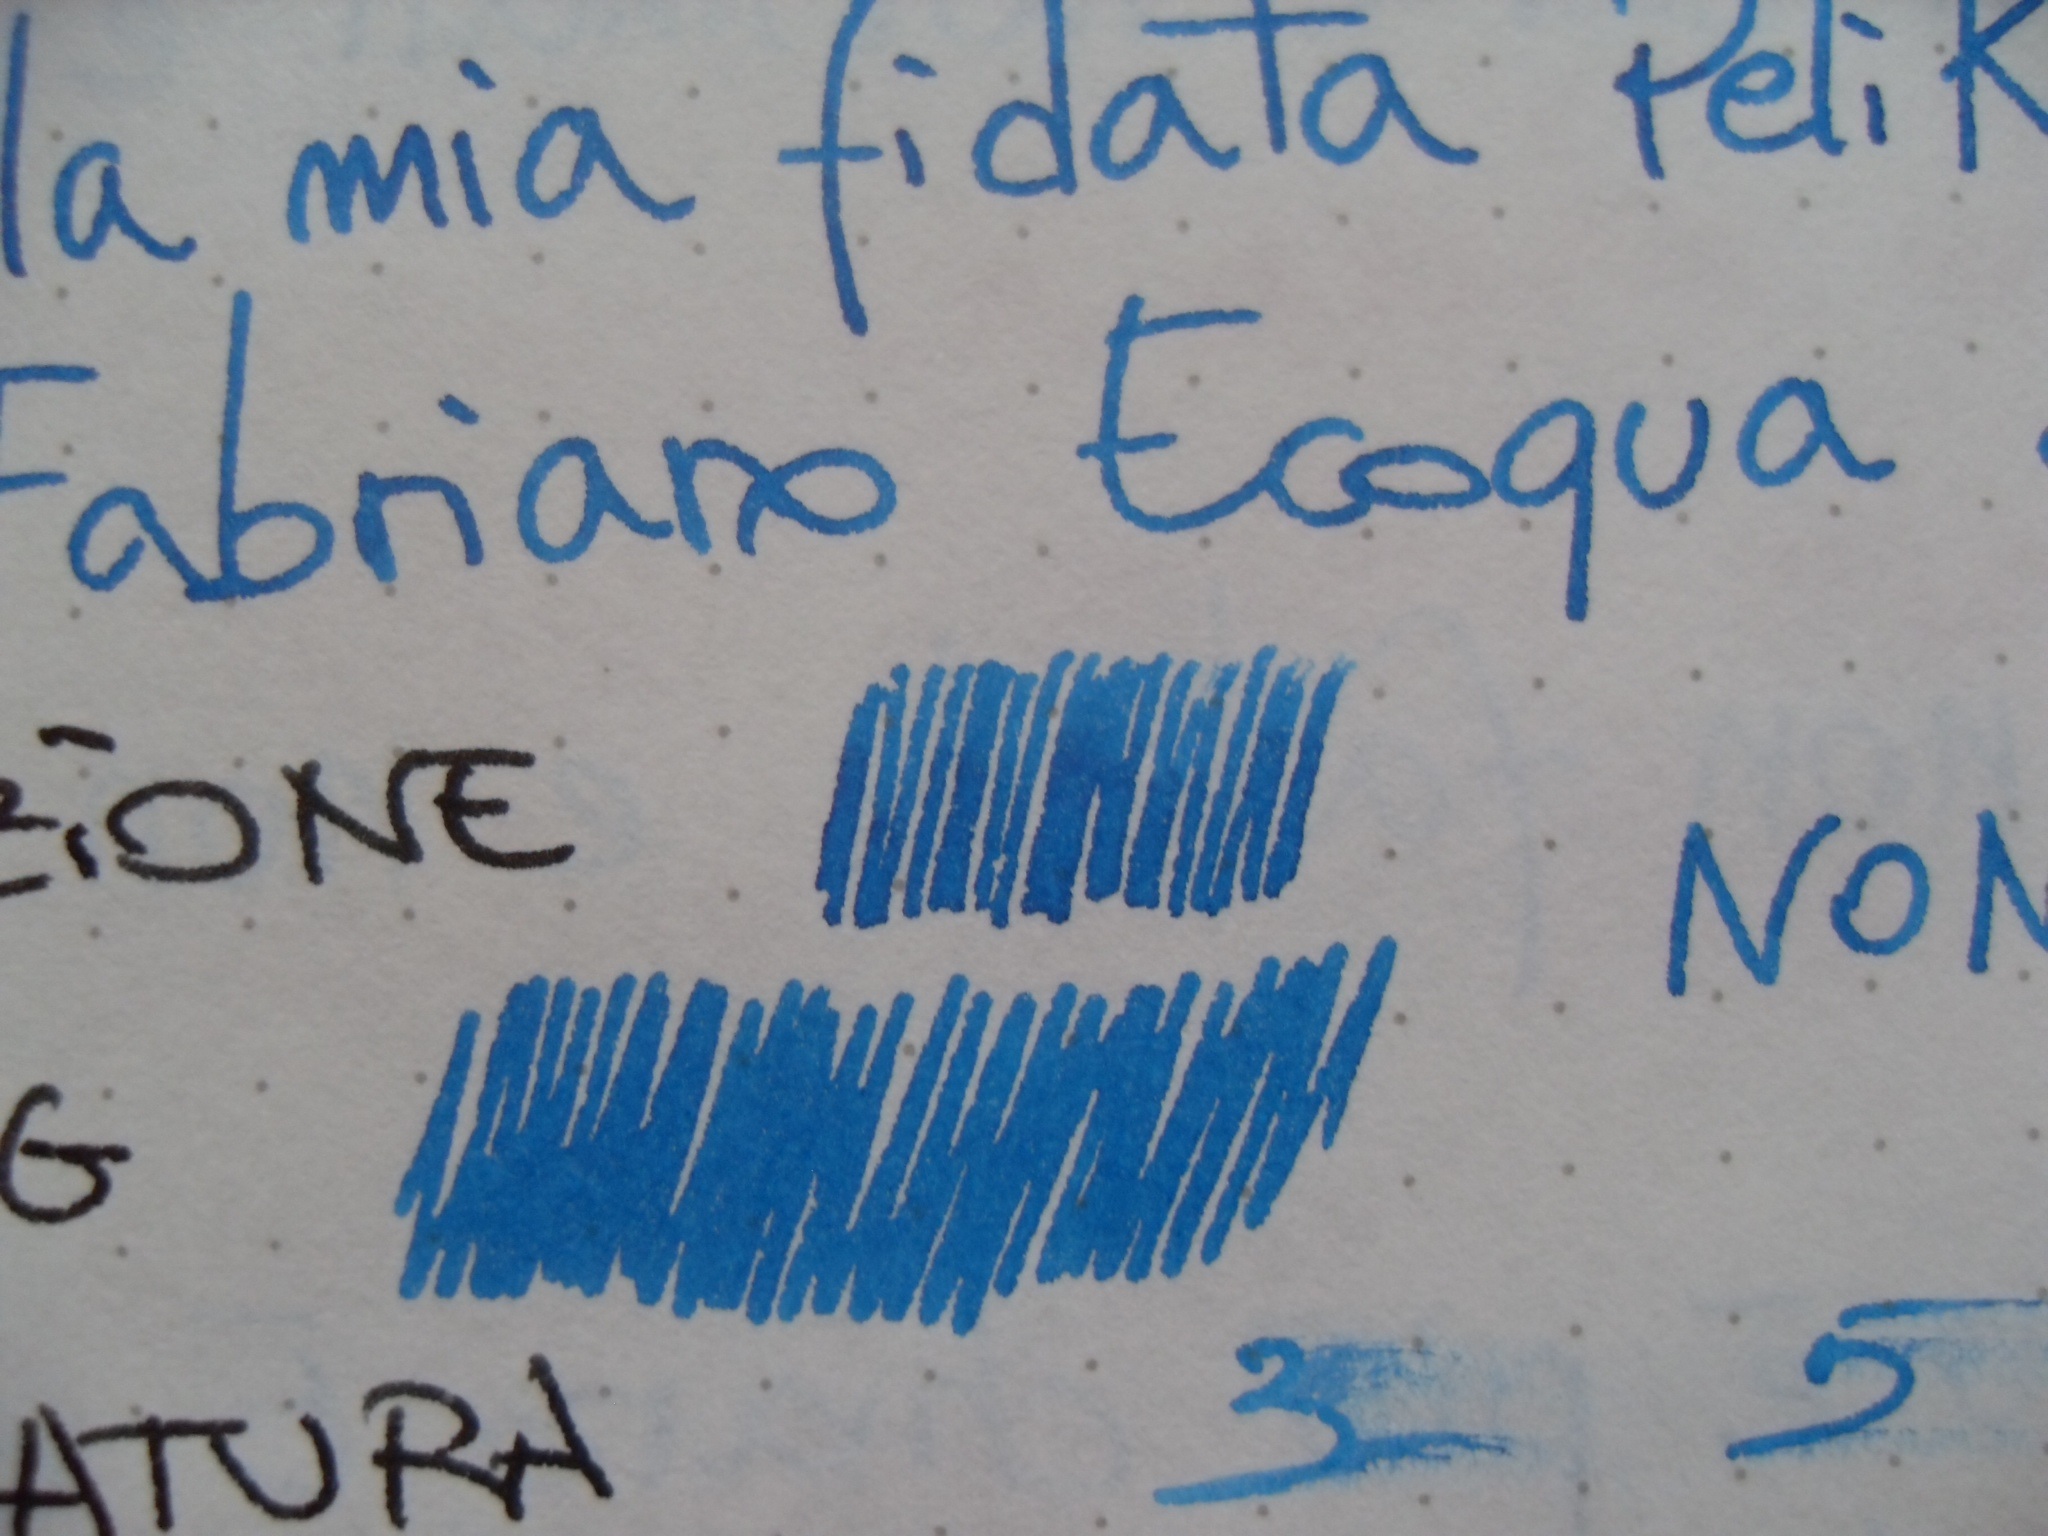 la mia fidata Pelik
Fabriano Ecoqua
ZiONE
NON
G
ATURA 3 5